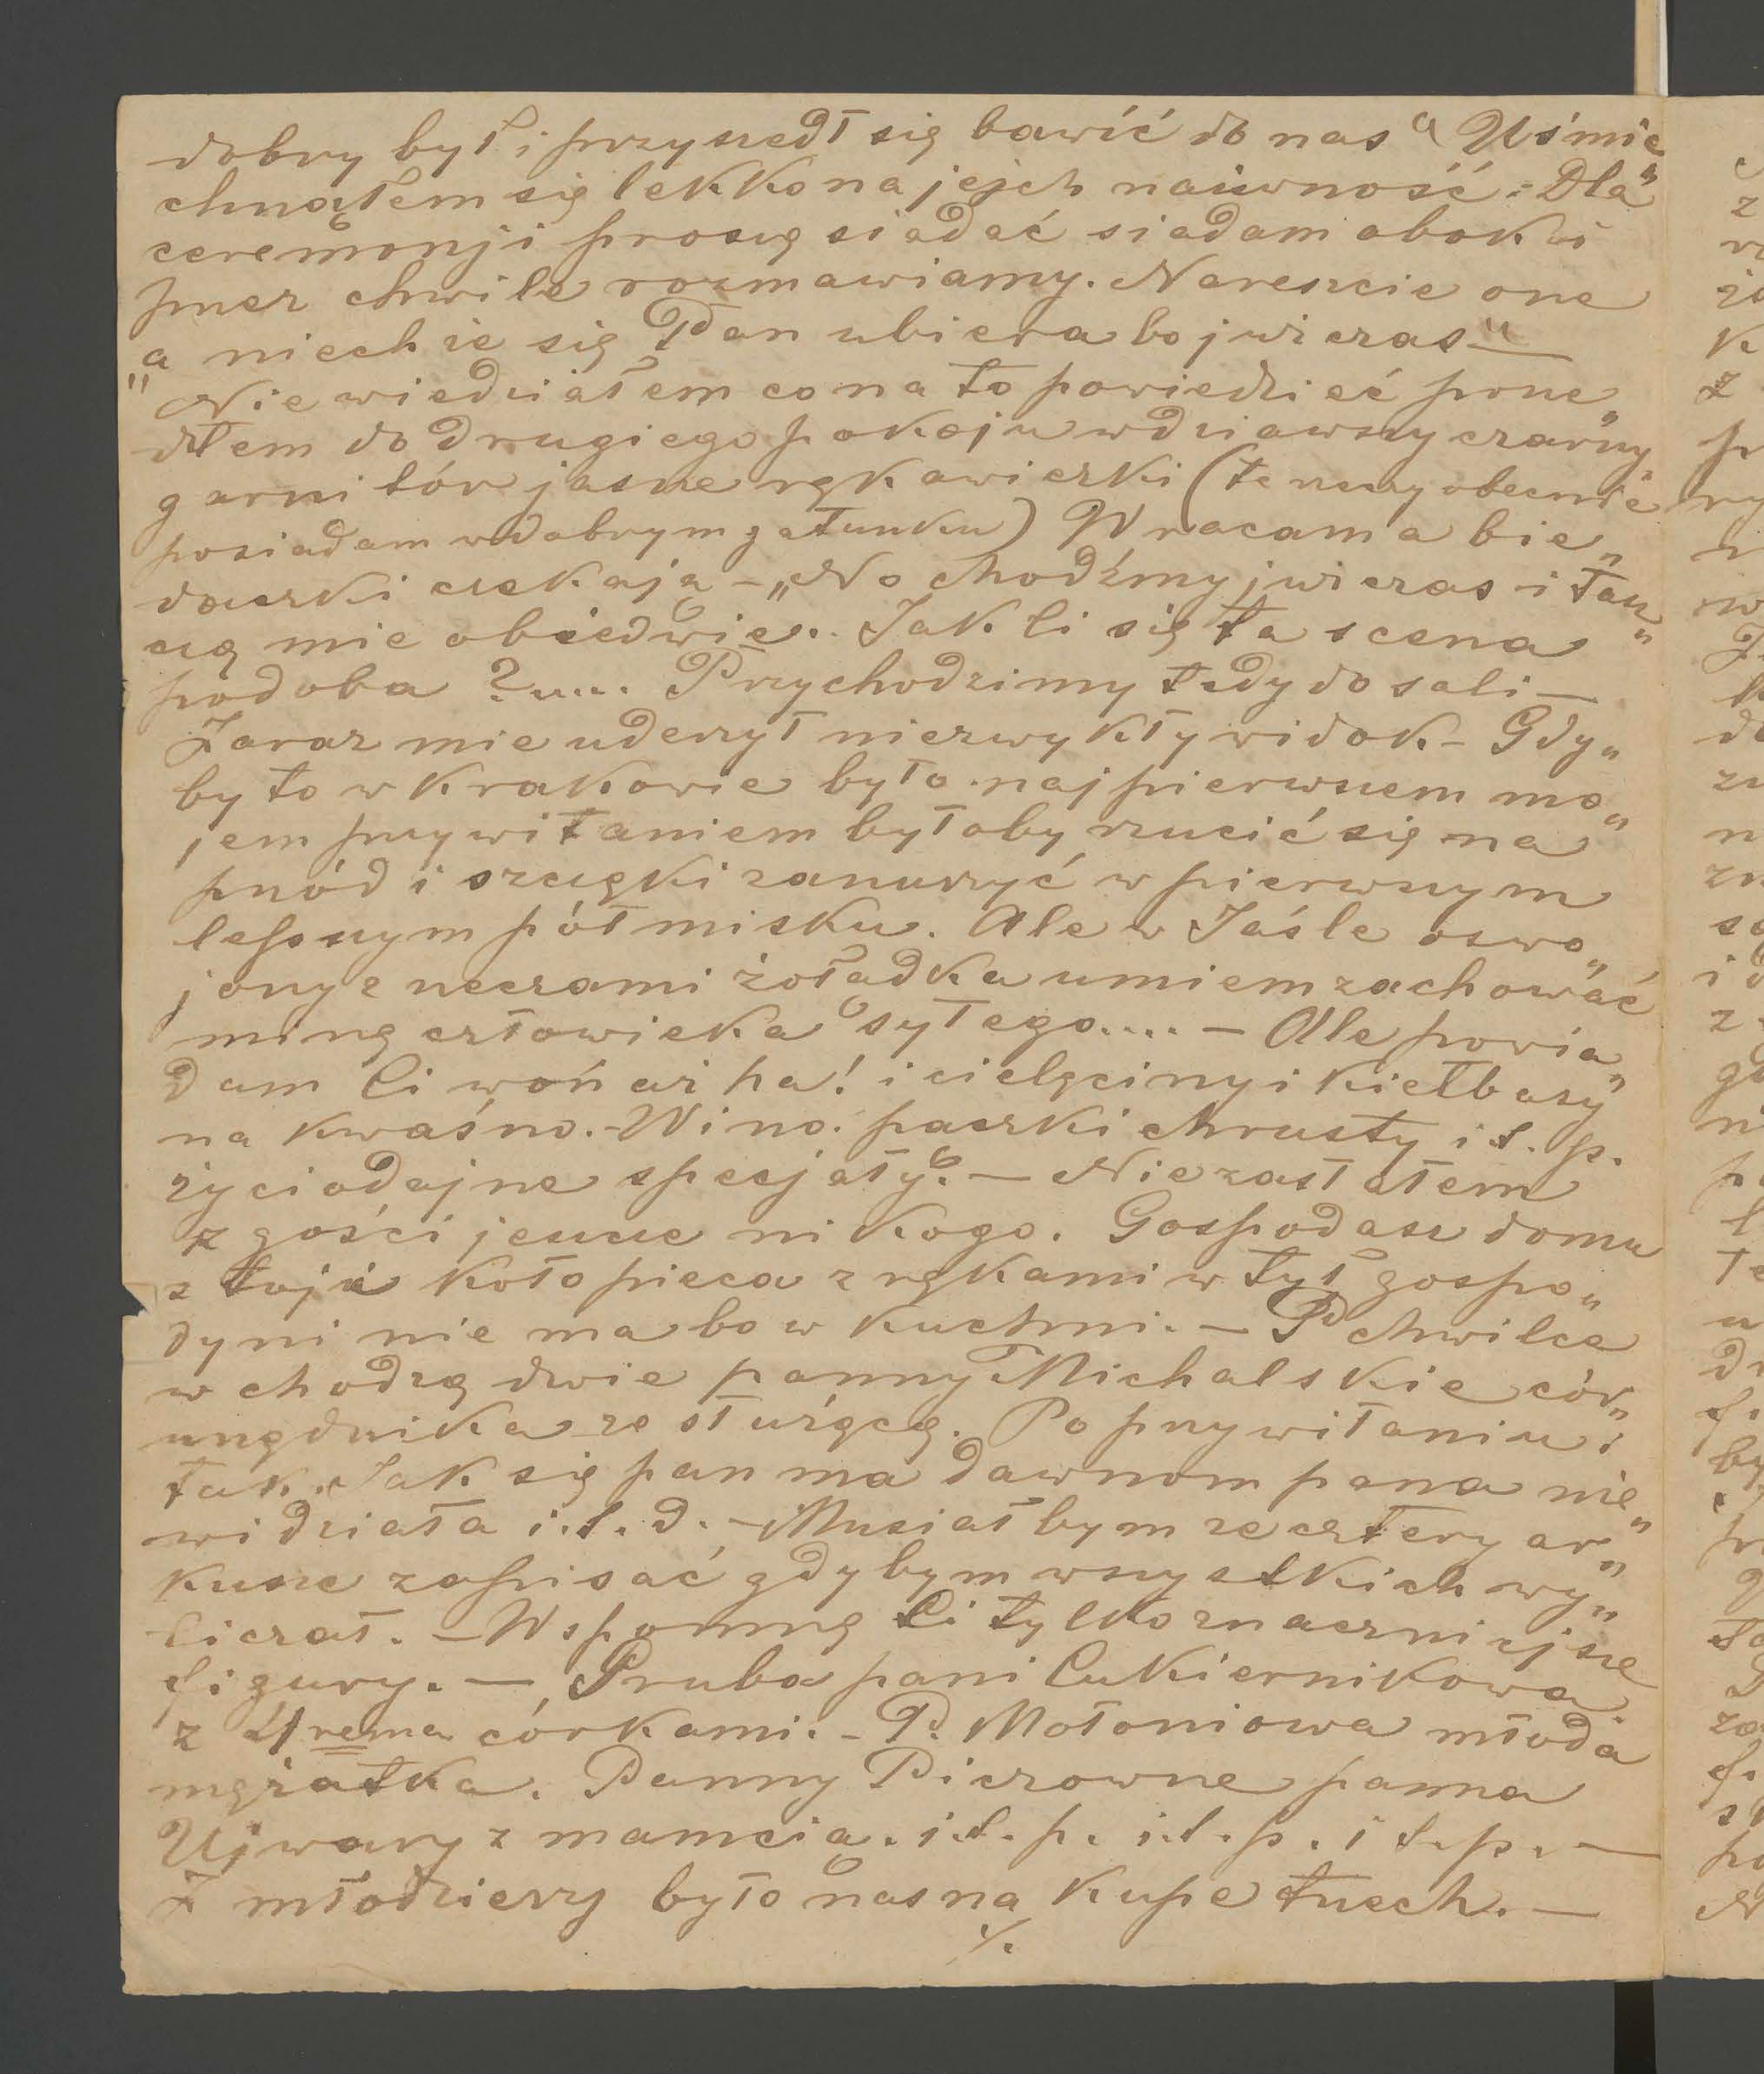 dobry był i przyszedł się bawić do nas" Uśmie„
chnąłem się lekko na jejch naiwność. Dla
ceremonji proszę siadać siadam obok i
przez chwile rozmawiamy. Nareszcie one
„a niech że się Pan ubiera bo już czas" —
Nie wiedziałem co na to powiedzieć prze„
dłem do drugiego pokoju wdziawszy czarny
garnitór jasne rękawiczki (te rzeczy obecnie
posiadam w dobrym gatunku) Wracam a bie„
daczki czekają — „No chodźmy już czas i tasz„
czą mie obiedwie. Jak Ci się ta scena
podoba ?.... Przychodzimy tedy do sali —
Zaraz mie uderzył niezwykły widok — Gdy„
by to w Krakowie było najpierwszem mo„
jem przywitaniem byłoby rzucić się na
przód i szczęki zanurzyć w pierwszym
lepszym półmisku. Ale w Jaśle oswo„
jony z rzeczami żołądka umiem zachować
minę człowieka sytego.... — Ale powia„
dam Ci woń aż ha! i cielęciny i kiełbasy
na kwaśno. — Wino. paczki chrusty i t. p.
życiodajne specjały. — Nie zastałem
z gości jeszcze nikogo. Gospodarz domu
stoji koło pieca z rękami w tył gospo„
dyni nie ma bo w kuchni. — P chwilce
wchodzą dwie panny Michalskie cór„
urzędnika ze służącą. Po przywitaniu i
tak. Jak się pan ma dawnom pana nie„
widziała i. t. d. — Musiałbym ze cztery ar„
kusze zapisać gdybym wszystkich wy„
liczał. — Wspomnę Ci tylko znaczniejsze
figury. — Gruba pani Cukiernikowa
z 4rema córkami. — P. Mołoniowa młoda
mężatka. Panny Piczowne panna
Ujwary z mamcią. i. t. p. i. t. p. i t. p. —
Z młodzieży było nas na kupe trzech. —
./.